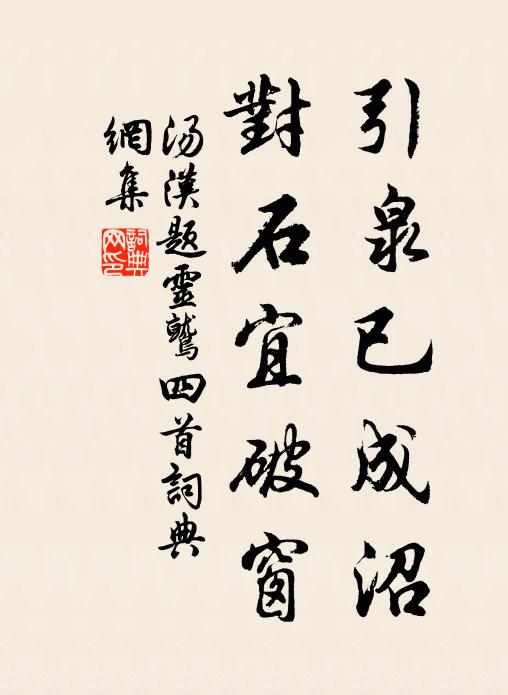 引泉已成沼
對石宜破窗
湯漢題靈鷲四首詞典
網集
詞典
网印